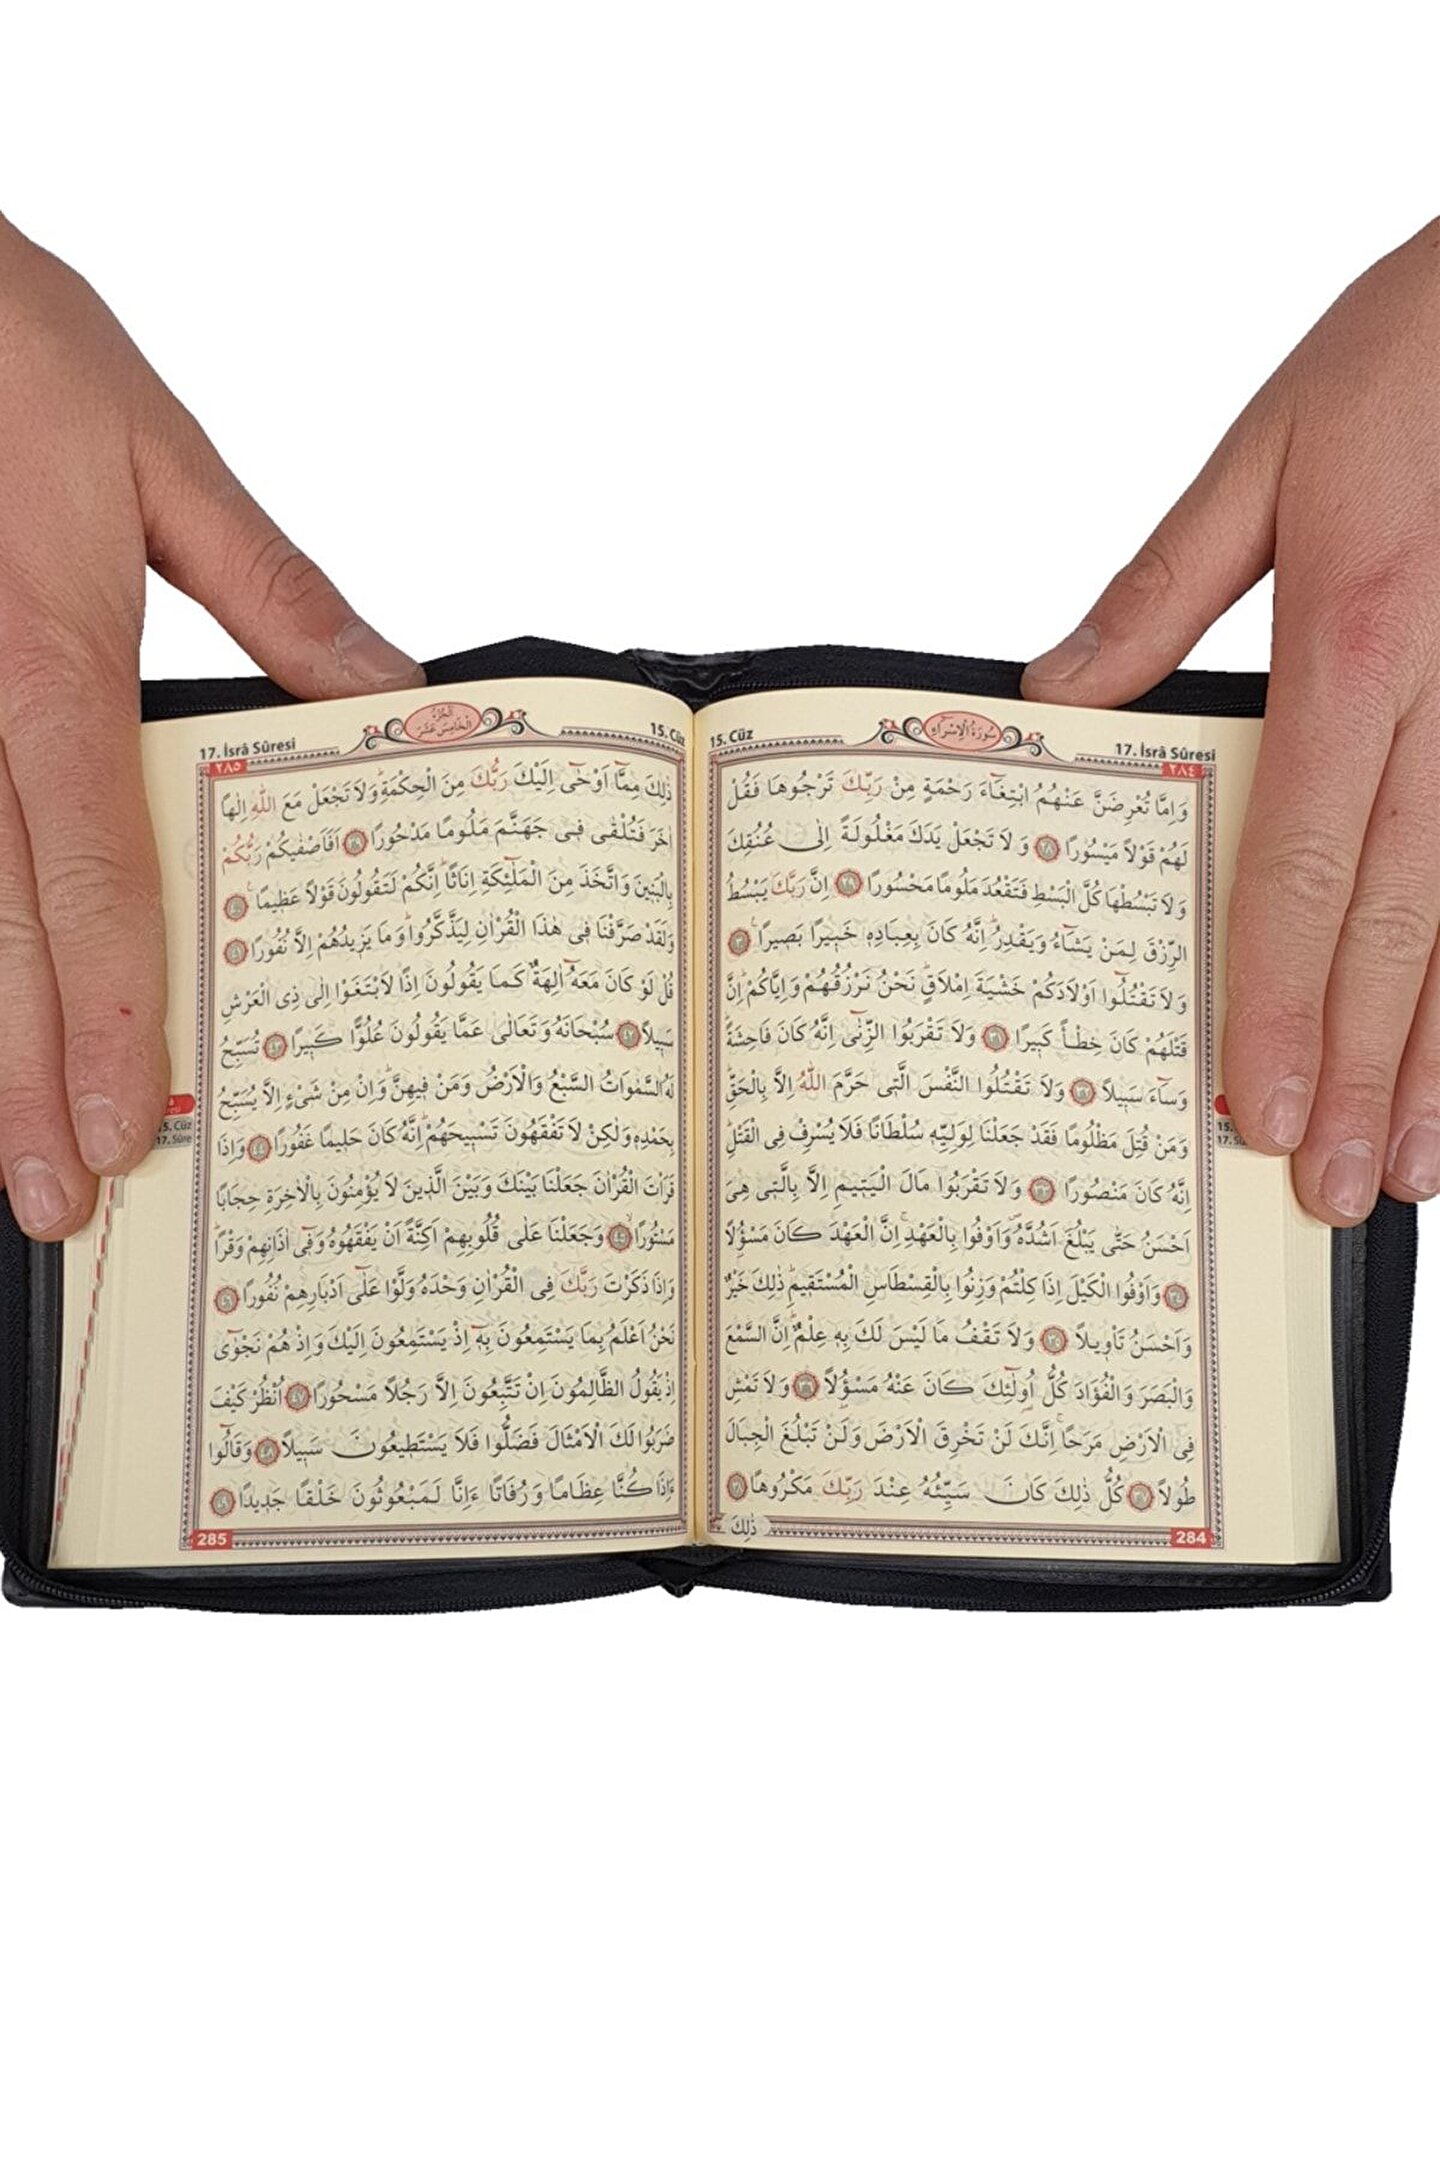 15. Cüz
سُورَةُ الْاِسْرَاءِ
17. İsrâ Sûresi
٢٨٤
وَاِمَّا تُعْرِضَنَّ عَنْهُمُ ابْتِغَٓاءَ رَحْمَةٍ مِنْ رَبِّكَ تَرْجُوهَا فَقُلْ
لَهُمْ قَوْلاً مَيْسُورًا ﴿٢٨﴾ وَلَا تَجْعَلْ يَدَكَ مَغْلُولَةً اِلٰى عُنُقِكَ
وَلَا تَبْسُطْهَا كُلَّ الْبَسْطِ فَتَقْعُدَ مَلُومًا مَحْسُورًا ﴿٢٩﴾ اِنَّ رَبَّكَ يَبْسُطُ
الرِّزْقَ لِمَنْ يَشَٓاءُ وَيَقْدِرُ اِنَّهُ كَانَ بِعِبَادِهِ خَبِيرًا بَصِيرًا ﴿٣٠﴾
وَلَا تَقْتُلُٓوا اَوْلَادَكُمْ خَشْيَةَ اِمْلَاقٍ نَحْنُ نَرْزُقُهُمْ وَاِيَّاكُمْ اِنَّ
قَتْلَهُمْ كَانَ خِطْـًٔا كَبِيرًا ﴿٣١﴾ وَلَا تَقْرَبُوا الزِّنٰٓى اِنَّهُ كَانَ فَاحِشَةً
وَسَٓاءَ سَبِيلاً ﴿٣٢﴾ وَلَا تَقْتُلُوا النَّفْسَ الَّتِى حَرَّمَ اللّٰهُ اِلَّا بِالْحَقِّ
وَمَنْ قُتِلَ مَظْلُومًا فَقَدْ جَعَلْنَا لِوَلِيِّهِ سُلْطَانًا فَلَا يُسْرِفْ فِى الْقَتْلِ
اِنَّهُ كَانَ مَنْصُورًا ﴿٣٣﴾ وَلَا تَقْرَبُوا مَالَ الْيَتِيمِ اِلَّا بِالَّتِى هِىَ
اَحْسَنُ حَتّٰى يَبْلُغَ اَشُدَّهُ وَاَوْفُوا بِالْعَهْدِ اِنَّ الْعَهْدَ كَانَ مَسْؤُلاً
﴿٣٤﴾ وَاَوْفُوا الْكَيْلَ اِذَا كِلْتُمْ وَزِنُوا بِالْقِسْطَاسِ الْمُسْتَقِيمِ ذٰلِكَ خَيْرٌ
وَاَحْسَنُ تَاْوِيلاً ﴿٣٥﴾ وَلَا تَقْفُ مَا لَيْسَ لَكَ بِهِ عِلْمٌ اِنَّ السَّمْعَ
وَالْبَصَرَ وَالْفُؤَادَ كُلُّ اُولٰٓئِكَ كَانَ عَنْهُ مَسْؤُلاً ﴿٣٦﴾ وَلَا تَمْشِ
فِى الْاَرْضِ مَرَحًا اِنَّكَ لَنْ تَخْرِقَ الْاَرْضَ وَلَنْ تَبْلُغَ الْجِبَالَ
طُولاً ﴿٣٧﴾ كُلُّ ذٰلِكَ كَانَ سَيِّئُهُ عِنْدَ رَبِّكَ مَكْرُوهًا ﴿٣٨﴾
ذٰلِكَ
284
17. İsrâ Sûresi
اَلْجُزْءُ الْخَامِسَ عَشَرَ
15. Cüz
٢٨٥
ذٰلِكَ مِمَّٓا اَوْحٰٓى اِلَيْكَ رَبُّكَ مِنَ الْحِكْمَةِ وَلَا تَجْعَلْ مَعَ اللّٰهِ اِلٰهًا
اٰخَرَ فَتُلْقٰى فِى جَهَنَّمَ مَلُومًا مَدْحُورًا ﴿٣٩﴾ اَفَاَصْفٰيكُمْ رَبُّكُمْ
بِالْبَنِينَ وَاتَّخَذَ مِنَ الْمَلٰٓئِكَةِ اِنَاثًا اِنَّكُمْ لَتَقُولُونَ قَوْلاً عَظِيمًا ﴿٤٠﴾
وَلَقَدْ صَرَّفْنَا فِى هٰذَا الْقُرْاٰنِ لِيَذَّكَّرُوا وَمَا يَزِيدُهُمْ اِلَّا نُفُورًا ﴿٤١﴾
قُلْ لَوْ كَانَ مَعَهُٓ اٰلِهَةٌ كَمَا يَقُولُونَ اِذًا لَابْتَغَوْا اِلٰى ذِى الْعَرْشِ
سَبِيلاً ﴿٤٢﴾ سُبْحَانَهُ وَتَعَالٰى عَمَّا يَقُولُونَ عُلُوًّا كَبِيرًا ﴿٤٣﴾ تُسَبِّحُ
لَهُ السَّمٰوَاتُ السَّبْعُ وَالْاَرْضُ وَمَنْ فِيهِنَّ وَاِنْ مِنْ شَىْءٍ اِلَّا يُسَبِّحُ
بِحَمْدِهِ وَلٰكِنْ لَا تَفْقَهُونَ تَسْبِيحَهُمْ اِنَّهُ كَانَ حَلِيمًا غَفُورًا ﴿٤٤﴾ وَاِذَا
قَرَاْتَ الْقُرْاٰنَ جَعَلْنَا بَيْنَكَ وَبَيْنَ الَّذِينَ لَا يُؤْمِنُونَ بِالْاٰخِرَةِ حِجَابًا
مَسْتُورًا ﴿٤٥﴾ وَجَعَلْنَا عَلٰى قُلُوبِهِمْ اَكِنَّةً اَنْ يَفْقَهُوهُ وَفِٓى اٰذَانِهِمْ وَقْرًا
وَاِذَا ذَكَرْتَ رَبَّكَ فِى الْقُرْاٰنِ وَحْدَهُ وَلَّوْا عَلٰٓى اَدْبَارِهِمْ نُفُورًا ﴿٤٦﴾
نَحْنُ اَعْلَمُ بِمَا يَسْتَمِعُونَ بِهِٓ اِذْ يَسْتَمِعُونَ اِلَيْكَ وَاِذْ هُمْ نَجْوٰٓى
اِذْ يَقُولُ الظَّالِمُونَ اِنْ تَتَّبِعُونَ اِلَّا رَجُلاً مَسْحُورًا ﴿٤٧﴾ اُنْظُرْ كَيْفَ
ضَرَبُوا لَكَ الْاَمْثَالَ فَضَلُّوا فَلَا يَسْتَطِيعُونَ سَبِيلاً ﴿٤٨﴾ وَقَالُٓوا
ءَاِذَا كُنَّا عِظَامًا وَرُفَاتًا ءَاِنَّا لَمَبْعُوثُونَ خَلْقًا جَدِيدًا ﴿٤٩﴾
285
5. Cüz
17. Sûre
15.
17. Sû